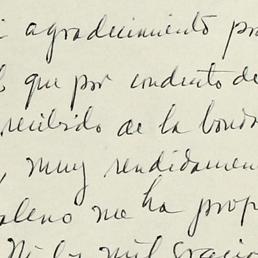 i agradecimiento pro
que por conducto de
recibido de la bond
, muy rendidamen
pleno me ha prop
Ni los mil gracio